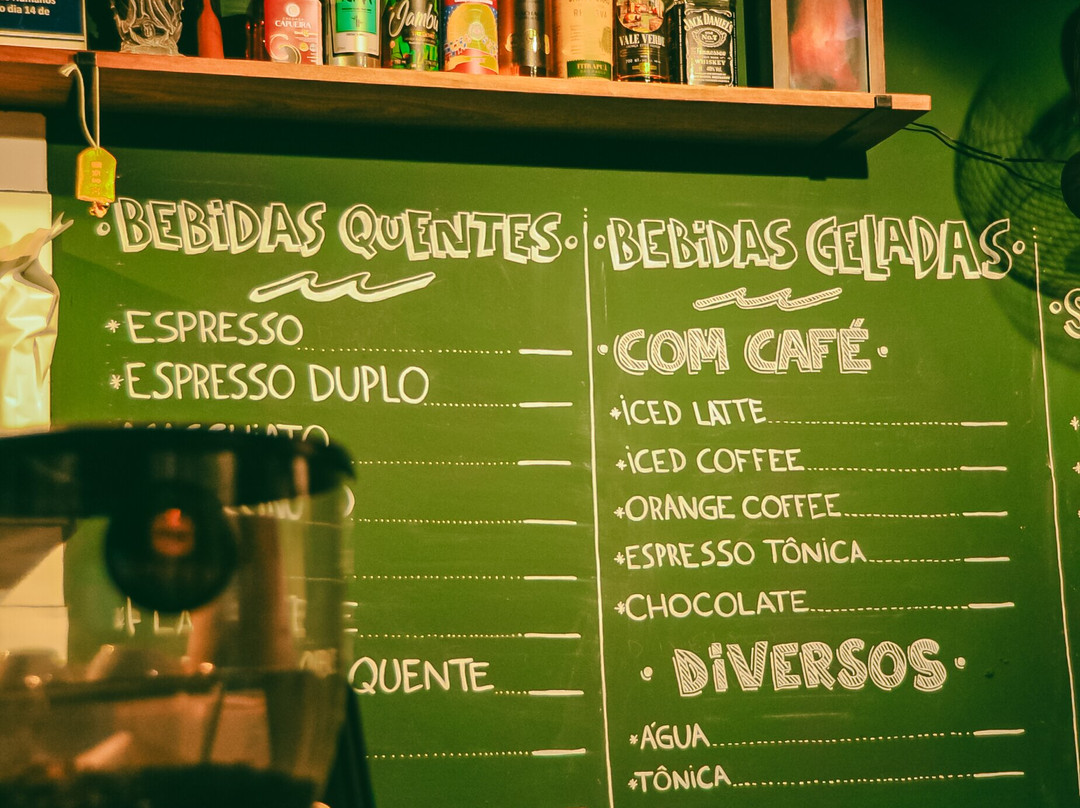 o dia 14 de
CAPUEIRA
Jambu
VALE VERDE
JACK DANIEL'S
WHISKEY
BEBIDAS QUENTES
*ESPRESSO
*ESPRESSO DUPLO
QUENTE
BEBIDAS GELADAS
COM CAFÉ
*ICED LATTE
*ICED COFFEE
*ORANGE COFFEE
*ESPRESSO TÔNICA
*CHOCOLATE
DIVERSOS
*ÁGUA
*TÔNICA